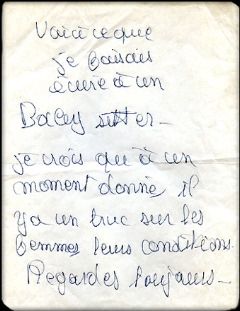 Voià ce que
je faisais
écrire à un
Baby sitter -
je crois qu'à un
moment donné il
y a un truc sur les
femmes leurs conditions.
Regardes toujours -